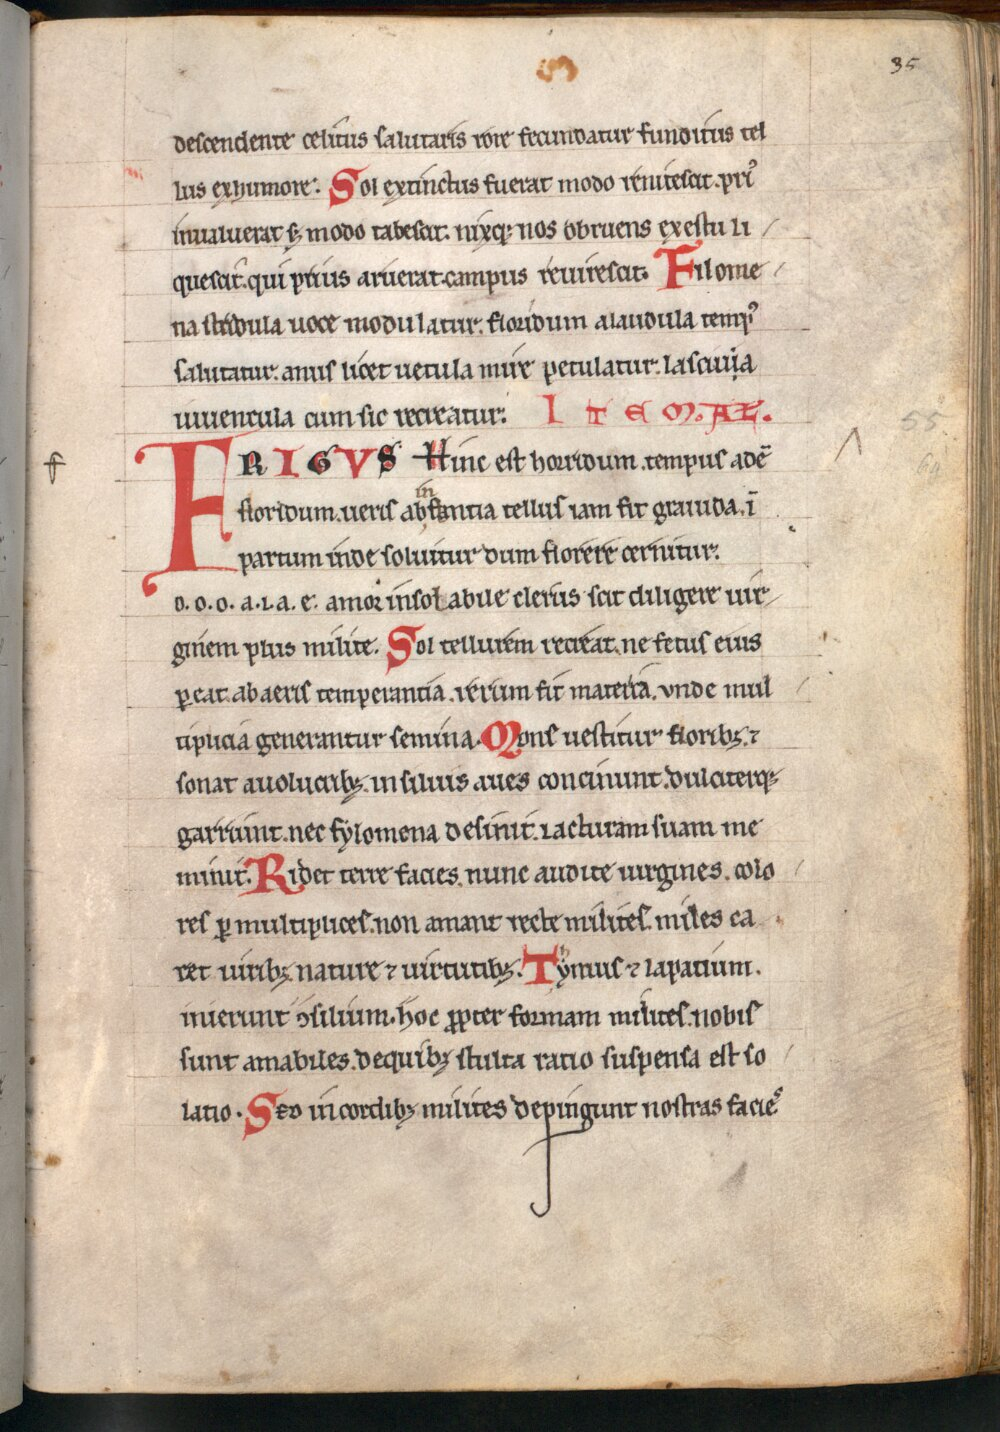 35
descendente celitus salutaris rore fecundatur funditus tel
lus ex humore. Sol extinctus fuerat modo renitescit. pri᷒
inualuerat sꝫ modo tabescit. nixqꝫ nos obruens ex estu li
quescit. qui prius aruerat campus reuirescit. Filome
na stridula uoce modulatur. floridum alaudula temp᷒
salutatur. anus licet uetula mire petulatur. lasciuia
iuuencula cum sic recreatur. ITEM. AL.
FRIGVS Hinc est horridum. tempus adē
floridum. ueris ab instantia tellus iam fit grauida. ī
partum inde soluitur dum florere cernitur.
o. o. o. a. i. a. e. amor insolabile clerus scit diligere uir
ginem plus milite. Sol tellurem recreat. ne fetus eius
ꝑeat. ab aeris temperantia. rerum fit materia. vnde mul
tiplicia generantur semina. Mons uestitur floribꝫ. ⁊
sonat a uolucribꝫ. in siluis aues concinunt. dulciterqꝫ
garriunt. nec fylomena desinit. iacturam suam me
minit. Ridet terre facies. nunc audite uirgines. colo
res ꝑ multiplices. non amant recte milites. miles ca
ret uiribꝫ nature ⁊ uirtutibꝫ. Tymus ⁊ lapatium.
inierunt ꝯsilium. hoc ꝓpter formam milites. nobis
sunt amabiles. de quibꝫ stulta ratio suspensa est so
latio. Sed in cordibꝫ milites depingunt nostras facies
55